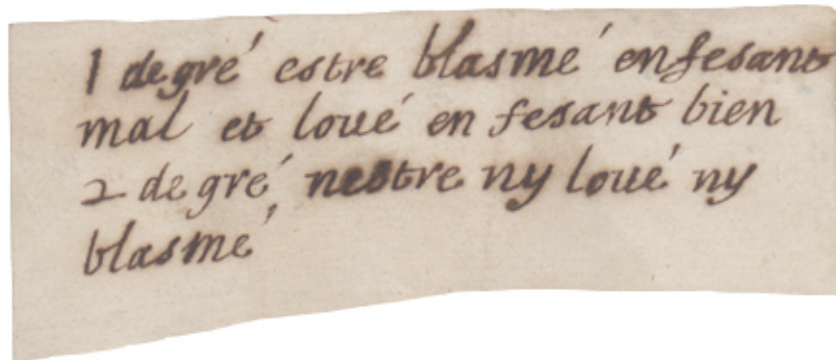 1 degré estre blasmé en fesant
mal et loué en fesant bien
2 degré, nestre ny loué ny
blasmé